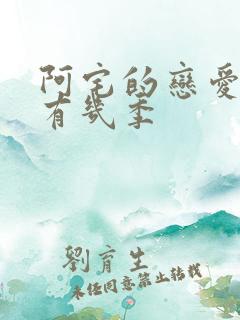 阿宅的戀愛
有幾季
劉育生
未經同意禁止轉載